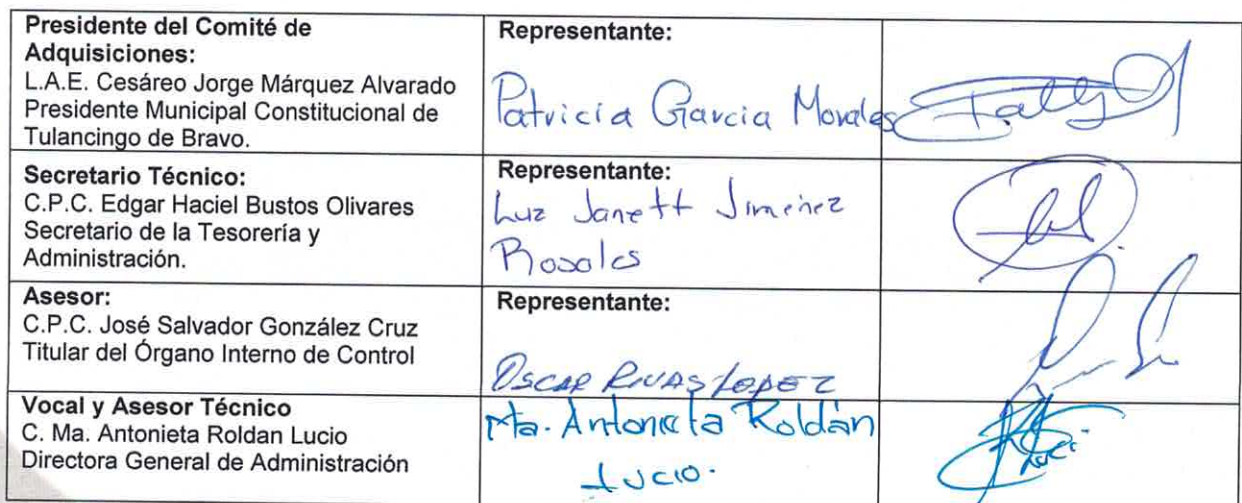 Presidente del Comité de
Adquisiciones:
L.A.E. Cesáreo Jorge Márquez Alvarado
Presidente Municipal Constitucional de
Tulancingo de Bravo.
Representante:
Patricia Garcia Morales
Secretario Técnico:
C.P.C. Edgar Haciel Bustos Olivares
Secretario de la Tesorería y
Administración.
Representante:
Luz Janett Jimenez
Rosales
Asesor:
C.P.C. José Salvador González Cruz
Titular del Órgano Interno de Control
Representante:
OSCAR RIVAS LOPEZ
Vocal y Asesor Técnico
C. Ma. Antonieta Roldan Lucio
Directora General de Administración
Ma. Antonieta Roldán
Lucio.